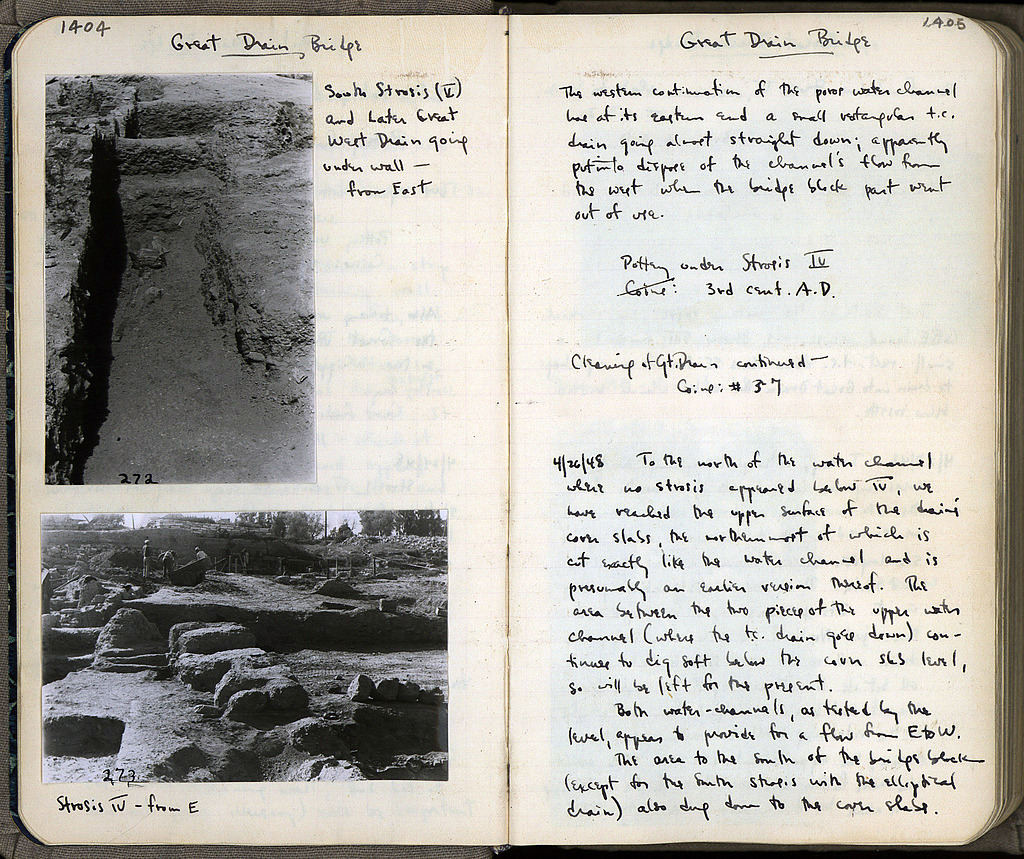 1404
Great Drain Bridge
South Strosis (V)
and Later Great
West Drain going
under wall —
from East
272
273
Strosis IV - from E
1405
Great Drain Bridge
The western continuation of the poros water channel
has at its eastern end a small rectangular t.c.
drain going almost straight down; apparently
put in to dispose of the channel's flow from
the west when the bridge block part went
out of use.
Pottery under Strosis IV
Coins: 3rd cent. A.D.
Cleaning of Gt. Drain continued —
Coins: # 37
4/26/48 To the north of the water channel
where no strosis appeared below IV, we
have reached the upper surface of the drain's
cover slabs, the northernmost of which is
cut exactly like the water channel and is
presumably an earlier version thereof. The
area between the two pieces of the upper water
channel (where the t.c. drain goes down) con-
tinues to dig soft below the cover slab level,
so will be left for the present.
Both water-channels, as tested by the
level, appear to provide for a flow from E to W.
The area to the South of the bridge block
(except for the South strosis with the elliptical
drain) also dug down to the cover slabs.